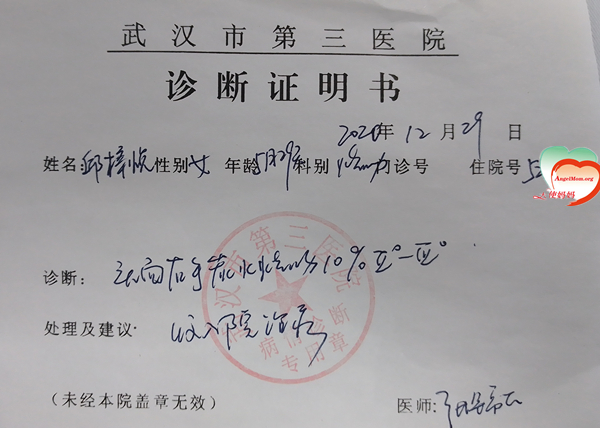 武汉市第三医院
诊断证明书
2020年12月29日
姓名: 邱梓悦 性别 女 年龄 5月29天 科别 烧伤 门诊号 住院号 5
AngelMom.org
天使妈妈
诊断: 头面右手热水烧伤10% Ⅱ°-Ⅲ°
处理及建议: 收入院治疗
武汉市第三医院
病情诊断
专用章
(未经本院盖章无效)
医师: